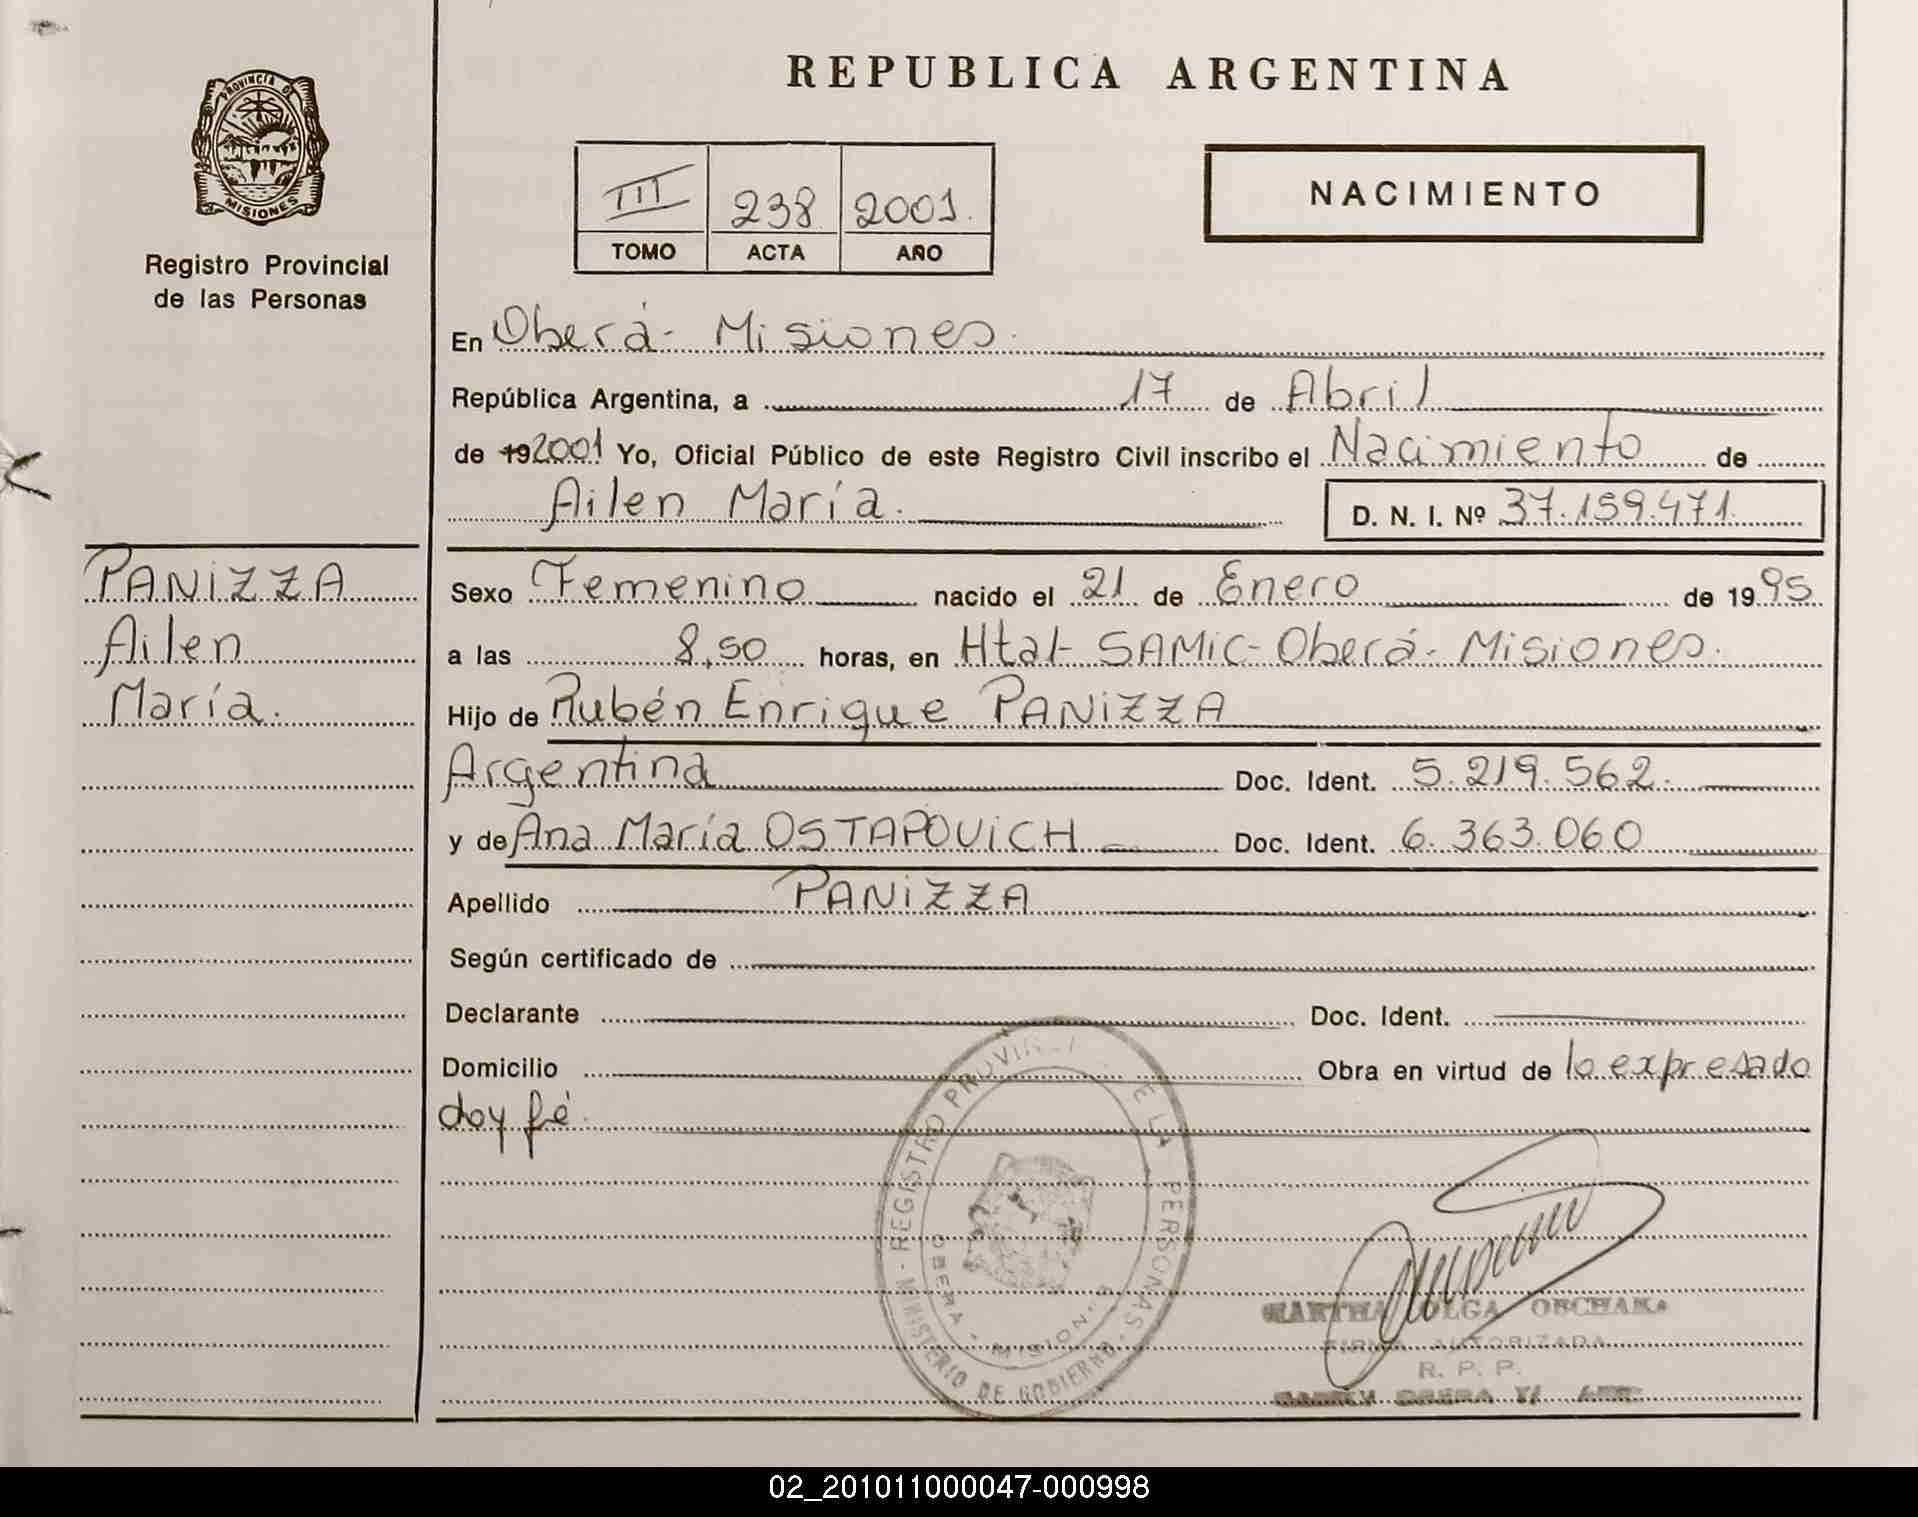 REPUBLICA ARGENTINA
PROVINCIA DE
MISIONES
Registro Provincial
de las Personas
III 238 2001.
TOMO ACTA AÑO
NACIMIENTO
En Oberá - Misiones.
República Argentina, a 17 de Abril
de 192001 Yo, Oficial Público de este Registro Civil inscribo el Nacimiento de
Ailen María. D. N. I. Nº 37.159.471.
PANIZZA
Ailen
María.
Sexo Femenino nacido el 21 de Enero de 1995
a las 8,50 horas, en Htal- SAMIC- Oberá- Misiones.
Hijo de Rubén Enrique PANIZZA
Argentina Doc. Ident. 5.219.562.
y de Ana María OSTAPOVICH Doc. Ident. 6.363.060
Apellido PANIZZA
Según certificado de
Declarante Doc. Ident.
Domicilio Obra en virtud de lo expresado
doy fé.
REGISTRO PROVINCI E LA PERSONAS
MINISTERIO DE GOBIERNO
OBERA - MISIONES
MARTHA OLGA
FIRMA AUTORIZADA
R. P. P.
02_201011000047-000998